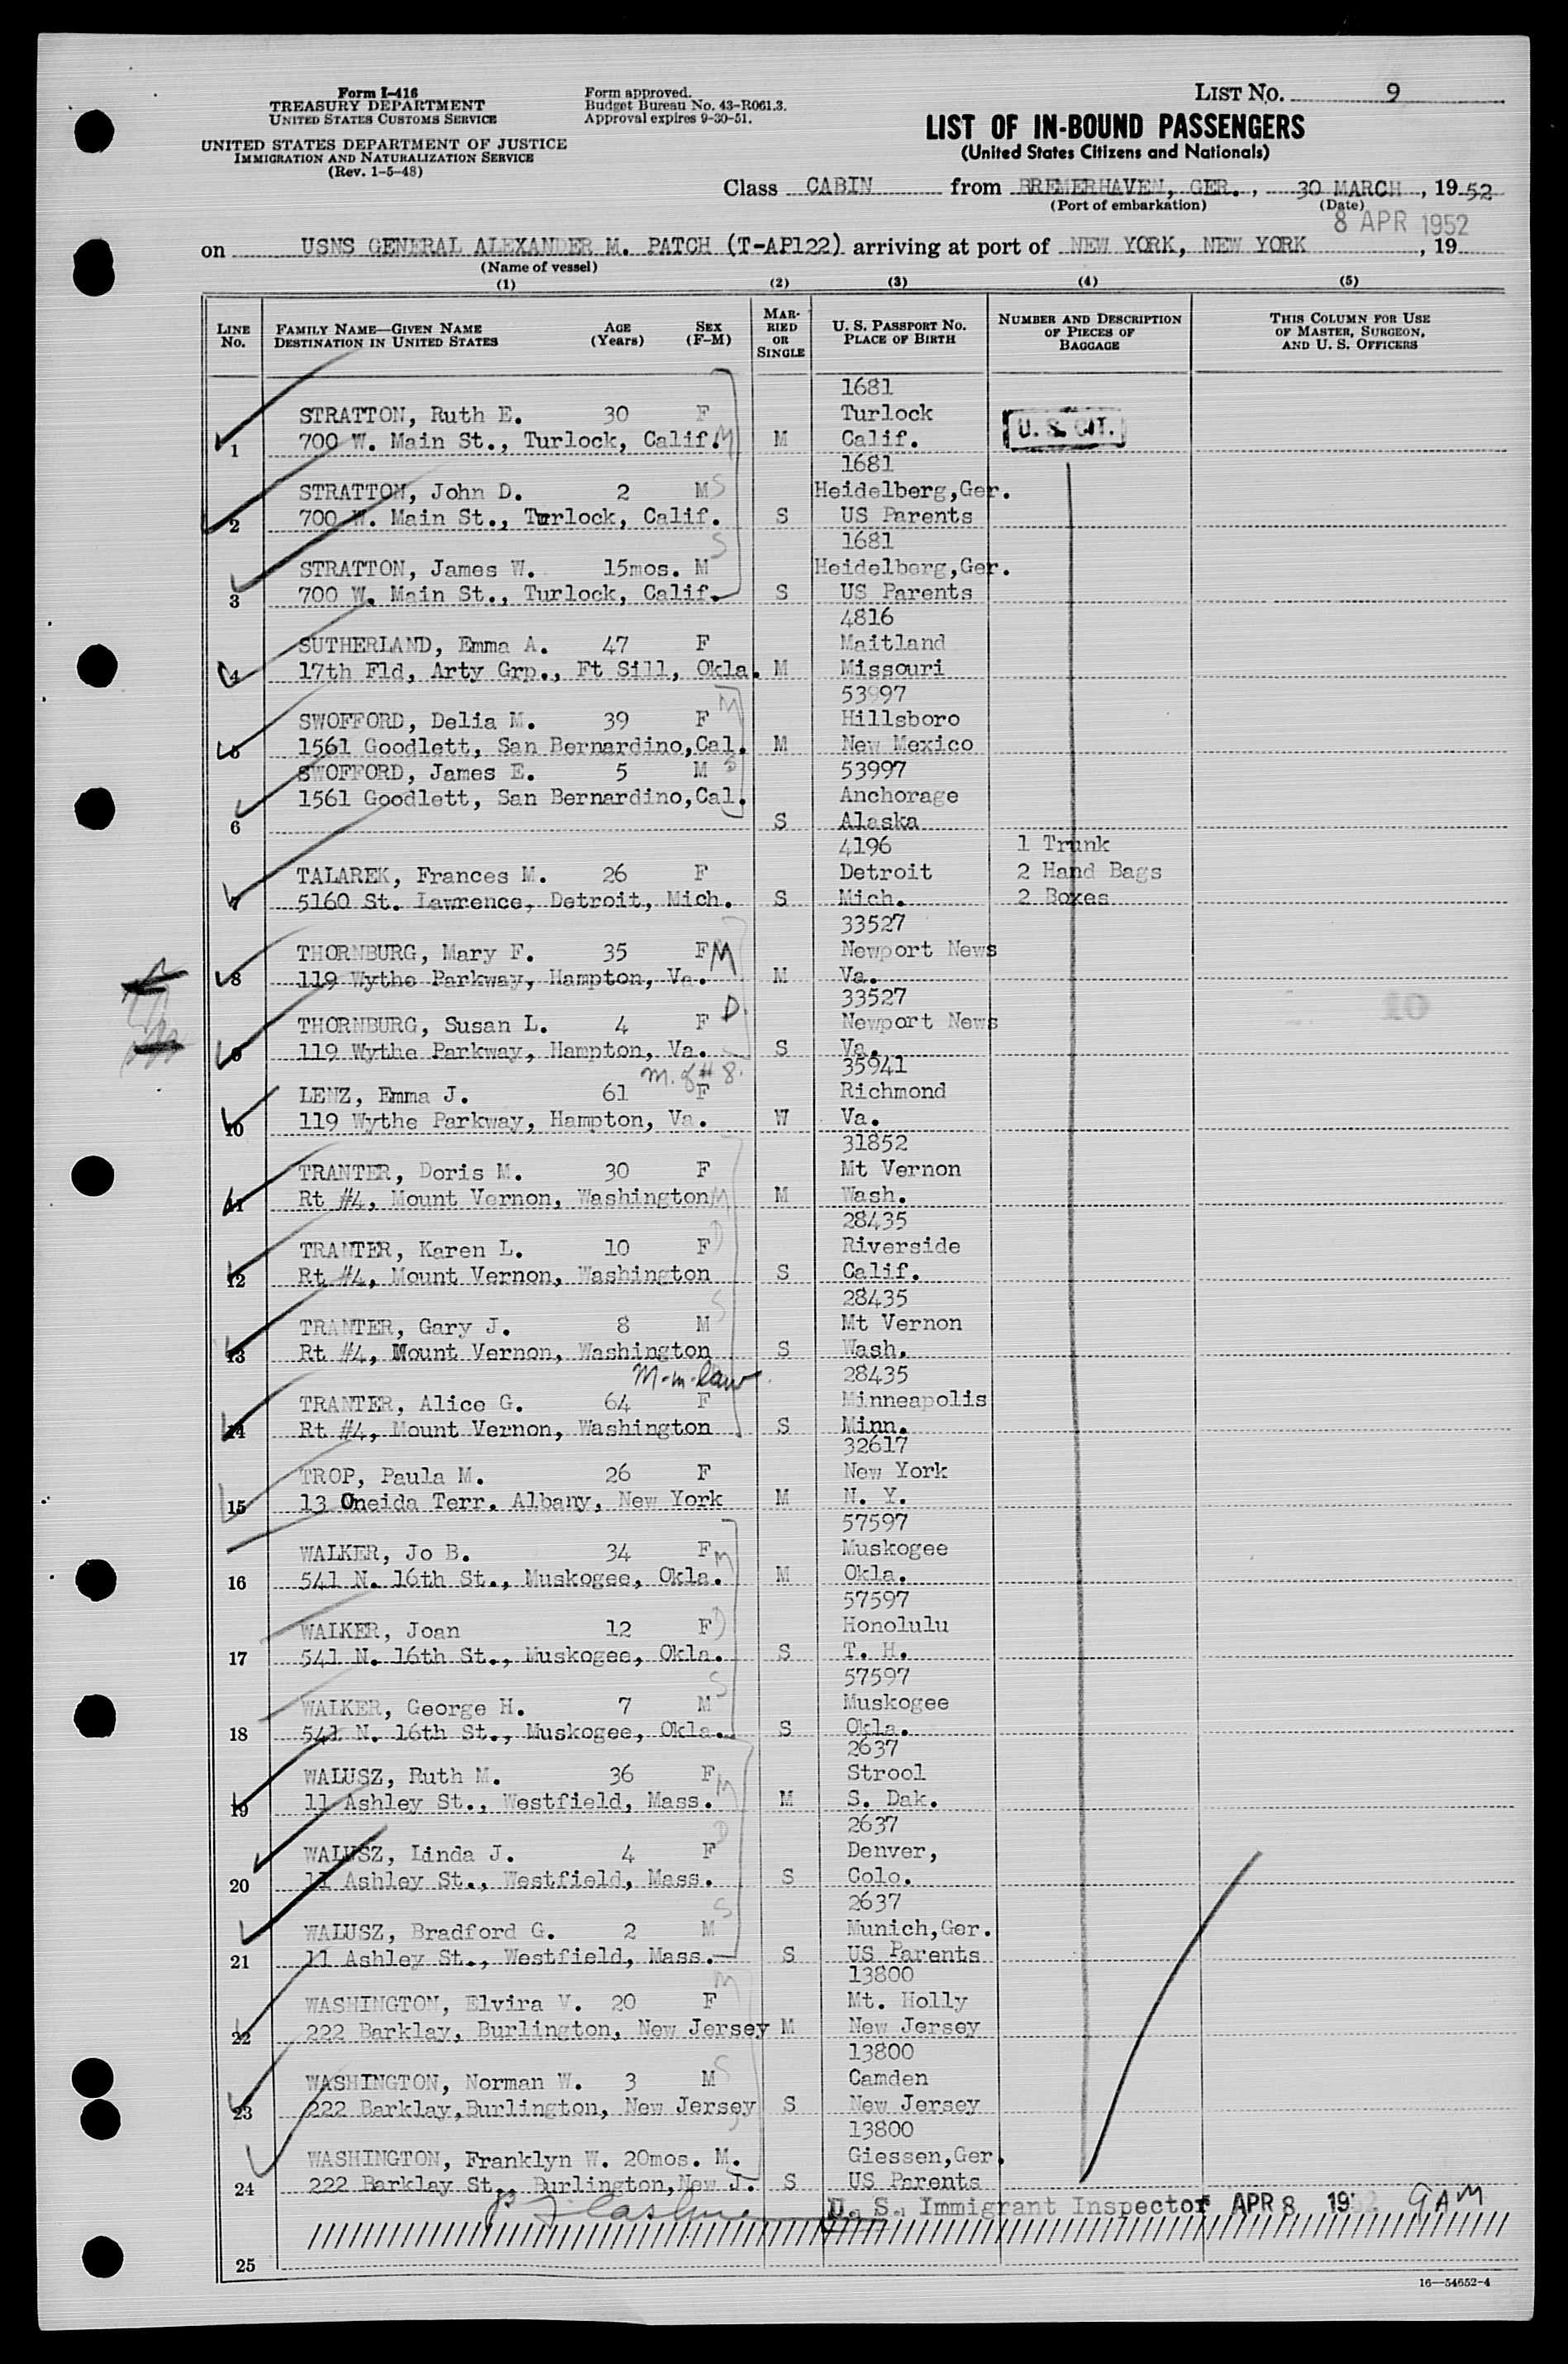 Form I-416
TREASURY DEPARTMENT
UNITED STATES CUSTOMS SERVICE
UNITED STATES DEPARTMENT OF JUSTICE
IMMIGRATION AND NATURALIZATION SERVICE
(Rev. 1-5-48)
Form approved.
Budget Bureau No. 43-R061.3.
Approval expires 9-30-51.
LIST NO. 9
LIST OF IN-BOUND PASSENGERS
(United States Citizens and Nationals)
Class CABIN from BREMERHAVEN, GER., 30 MARCH, 1952
(Port of embarkation) (Date)
8 APR 1952
on USNS GENERAL ALEXANDER M. PATCH (T-AP122) arriving at port of NEW YORK, NEW YORK, 19
(Name of vessel)
(1) (2) (3) (4) (5)
LINE NO. FAMILY NAME—GIVEN NAME DESTINATION IN UNITED STATES AGE (Years) SEX (F-M) MARRIED OR SINGLE U. S. PASSPORT NO. PLACE OF BIRTH NUMBER AND DESCRIPTION OF PIECES OF BAGGAGE THIS COLUMN FOR USE OF MASTER, SURGEON, AND U. S. OFFICERS
1681
STRATTON, Ruth E. 30 F Turlock
1 700 W. Main St., Turlock, Calif. M M Calif. U. S. CIT.
1681
STRATTON, John D. 2 M S Heidelberg,Ger.
2 700 W. Main St., Turlock, Calif. S US Parents
S 1681
STRATTON, James W. 15mos. M Heidelberg,Ger.
3 700 W. Main St., Turlock, Calif. S US Parents
4816
SUTHERLAND, Emma A. 47 F Maitland
4 17th Fld, Arty Grp., Ft Sill, Okla. M Missouri
53997
SWOFFORD, Delia M. 39 F M Hillsboro
5 1561 Goodlett, San Bernardino,Cal. M New Mexico
SWOFFORD, James E. 5 M S 53997
1561 Goodlett, San Bernardino,Cal. Anchorage
6 S Alaska
4196 1 Trunk
TALAREK, Frances M. 26 F Detroit 2 Hand Bags
7 5160 St. Lawrence, Detroit, Mich. S Mich. 2 Boxes
33527
THORNBURG, Mary F. 35 F M Newport News
8 119 Wythe Parkway, Hampton, Va. M Va.
33527
THORNBURG, Susan L. 4 F D. Newport News 10
9 119 Wythe Parkway, Hampton, Va. S Va.
M. of # 8. 35941
LENZ, Emma J. 61 F Richmond
10 119 Wythe Parkway, Hampton, Va. W Va.
31852
TRANTER, Doris M. 30 F Mt Vernon
11 Rt #4, Mount Vernon, Washington M M Wash.
28435
TRANTER, Karen L. 10 F D Riverside
12 Rt #4, Mount Vernon, Washington S Calif.
S 28435
TRANTER, Gary J. 8 M Mt Vernon
13 Rt #4, Mount Vernon, Washington S Wash.
M-in-law 28435
TRANTER, Alice G. 64 F Minneapolis
14 Rt #4, Mount Vernon, Washington S Minn.
32617
TROP, Paula M. 26 F New York
15 13 Oneida Terr. Albany, New York M N. Y.
57597
WALKER, Jo B. 34 F M Muskogee
16 541 N. 16th St., Muskogee, Okla. M Okla.
57597
WALKER, Joan 12 F D Honolulu
17 541 N. 16th St., Muskogee, Okla. S T. H.
S 57597
WALKER, George H. 7 M Muskogee
18 541 N. 16th St., Muskogee, Okla. S Okla.
2637
WALUSZ, Ruth M. 36 F M Strool
19 11 Ashley St., Westfield, Mass. M S. Dak.
D 2637
WALUSZ, Linda J. 4 F Denver,
20 11 Ashley St., Westfield, Mass. S Colo.
S 2637
WALUSZ, Bradford G. 2 M Munich,Ger.
21 11 Ashley St., Westfield, Mass. S US Parents
M 13800
WASHINGTON, Elvira V. 20 F Mt. Holly
22 222 Barklay, Burlington, New Jersey M New Jersey
13800
WASHINGTON, Norman W. 3 M S Camden
23 222 Barklay,Burlington, New Jersey S New Jersey
S 13800
WASHINGTON, Franklyn W. 20mos. M. Giessen,Ger.
24 222 Barklay St., Burlington,New J. S US Parents
U. S. Immigrant Inspector APR 8 1952 GAM
25
16—54652-4